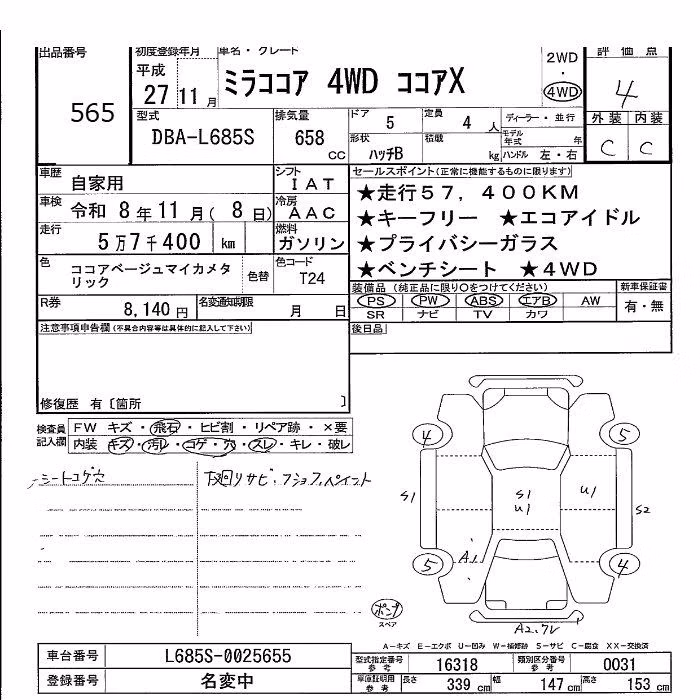 出品番号
565
初度登録年月
平成
27 11 月
車名・グレード
ミラココア 4WD ココアX
2WD
・
4WD
評価点
4
型式
DBA-L685S
排気量
658
CC
ドア
5
定員
4 人
ディーラー・並行
形状
ハッチB
積載
kg
モデル年式
年
ハンドル 左・右
外装 内装
C C
車歴
自家用
シフト
IAT
車検
令和 8年11月( 8日)
冷房
AAC
走行
5万7千400 km
燃料
ガソリン
色
ココアベージュマイカメタ
リック
色替
色コード
T24
R券
8,140円
名変通知期限
月 日
セールスポイント(正常に機能するものに限ります)
★走行57,400KM
★キーフリー ★エコアイドル
★プライバシーガラス
★ベンチシート ★4WD
装備品 (純正品に限り○をつけてください)
新車保証書
PS PW ABS エアB AW
有・無
SR ナビ TV カワ
後日品
注意事項申告欄(不具合内容等は具体的に記入して下さい)
修復歴 有〔箇所 〕
検査員
記入欄
FW キズ・飛石・ヒビ割・リペア跡・×要
内装 キズ・汚レ・コゲ・穴・スレ・キレ・破レ
シートコゲ穴
下廻りサビ・フショク、ペイント
4
5
S1
S1
U1
U1
S2
A1
5
4
ポンプ
スペア
A2,マレ
A-キズ E-エクボ U-凹み W-補修跡 S-サビ C-腐食 XX-交換済
車台番号
L685S-0025655
登録番号
名変中
型式指定番号
参考
16318
類別区分番号
参考
0031
車庫証明用
参考
長さ 339 cm
幅 147 cm
高さ 153 cm